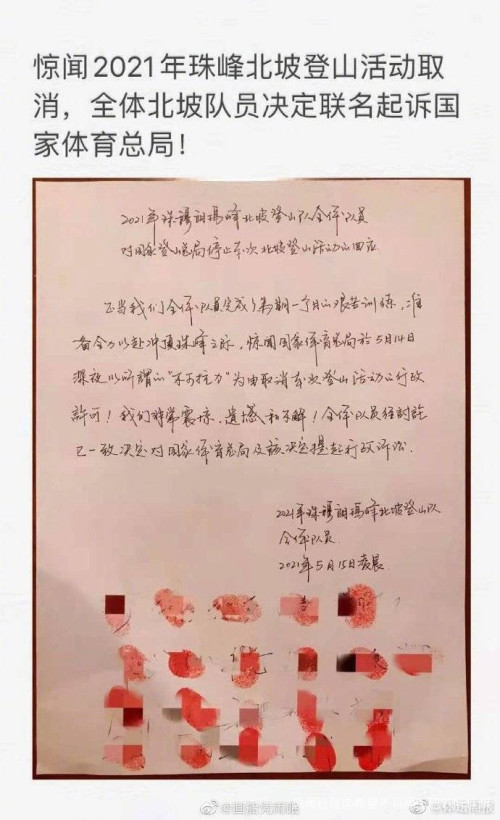 惊闻2021年珠峰北坡登山活动取
消，全体北坡队员决定联名起诉国
家体育总局！
2021年珠穆朗瑪峰北坡登山队全体队员
对国家登总局停止本次北坡登山活动的回应
正当我们全体队员完成了为期一个月的艰苦训练，准
备全力以赴冲顶珠峰之际，惊闻国家体育总局於5月14日
深夜以所謂的“不可抗力”为由取消本次登山活动的行政
許可！我们非常震惊，遗憾和不解！全体队员经討論
已一致决定对国家体育总局及該决定提起行政诉讼.
2021年珠穆朗瑪峰北坡登山队
全体队员.
2021年5月15日凌晨
@直播